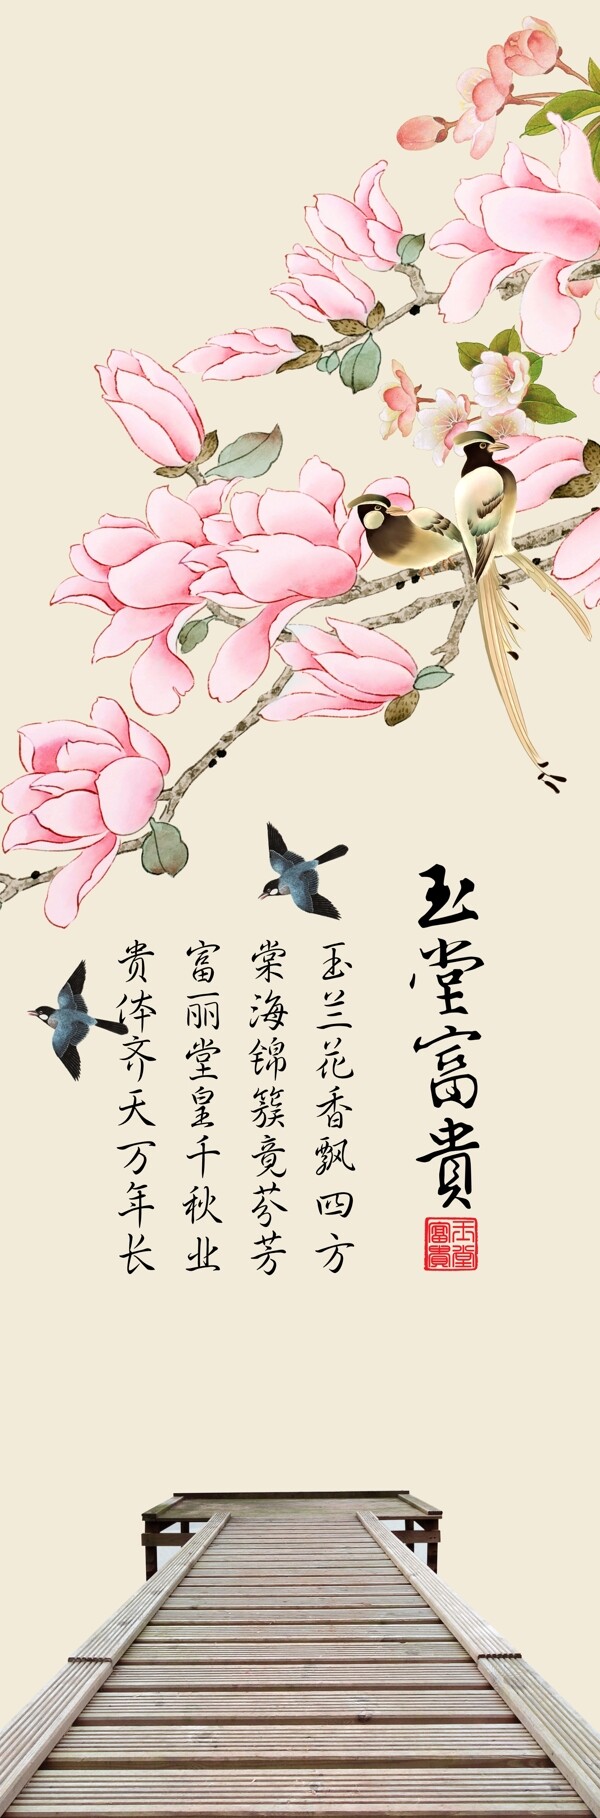 玉堂富貴
玉堂富貴
玉兰花香飘四方
棠海锦簇竟芬芳
富丽堂皇千秋业
贵体齐天万年长